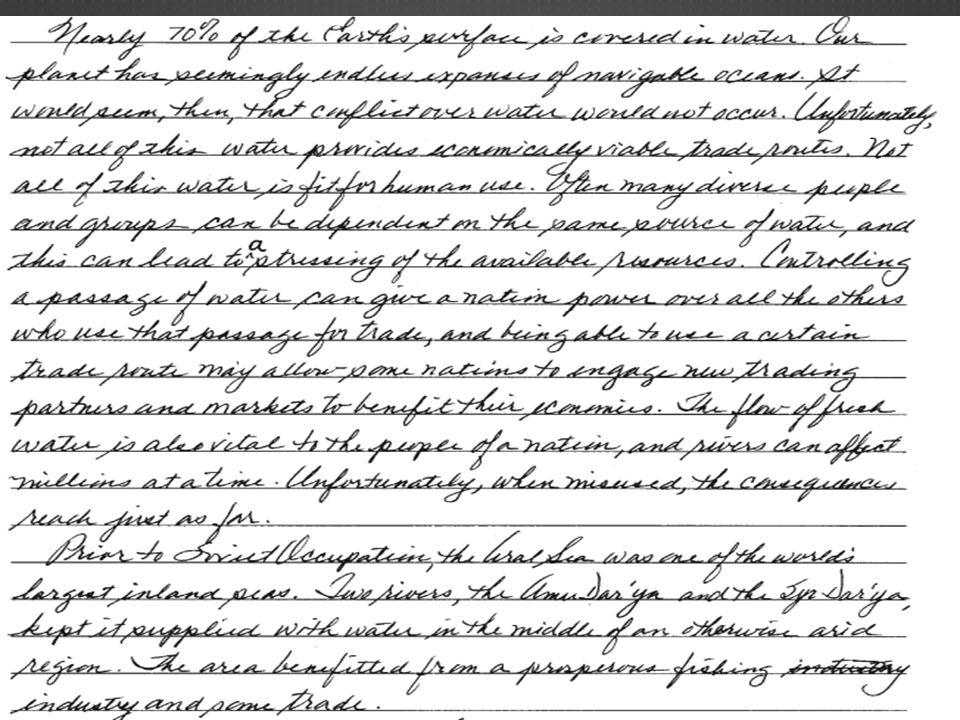 Nearly 70% of the Earth's surface is covered in water. Our
planet has seemingly endless expanses of navigable oceans. It
would seem, then, that conflict over water would not occur. Unfortunately,
not all of this water provides economically viable trade routes. Not
all of this water is fit for human use. Often many diverse people
and groups can be dependent on the same source of water, and
this can lead to a stressing of the available resources. Controlling
a passage of water can give a nation power over all the others
who use that passage for trade, and being able to use a certain
trade route may allow some nations to engage new trading
partners and markets to benefit their economies. The flow of fresh
water is also vital to the people of a nation, and rivers can affect
millions at a time. Unfortunately, when misused, the consequences
reach just as far.
Prior to Soviet Occupation, the Aral Sea was one of the world's
largest inland seas. Two rivers, the Amu Dar'ya and the Syr Dar'ya,
kept it supplied with water in the middle of an otherwise arid
region. The area benefitted from a prosperous fishing industry
industry and some trade.